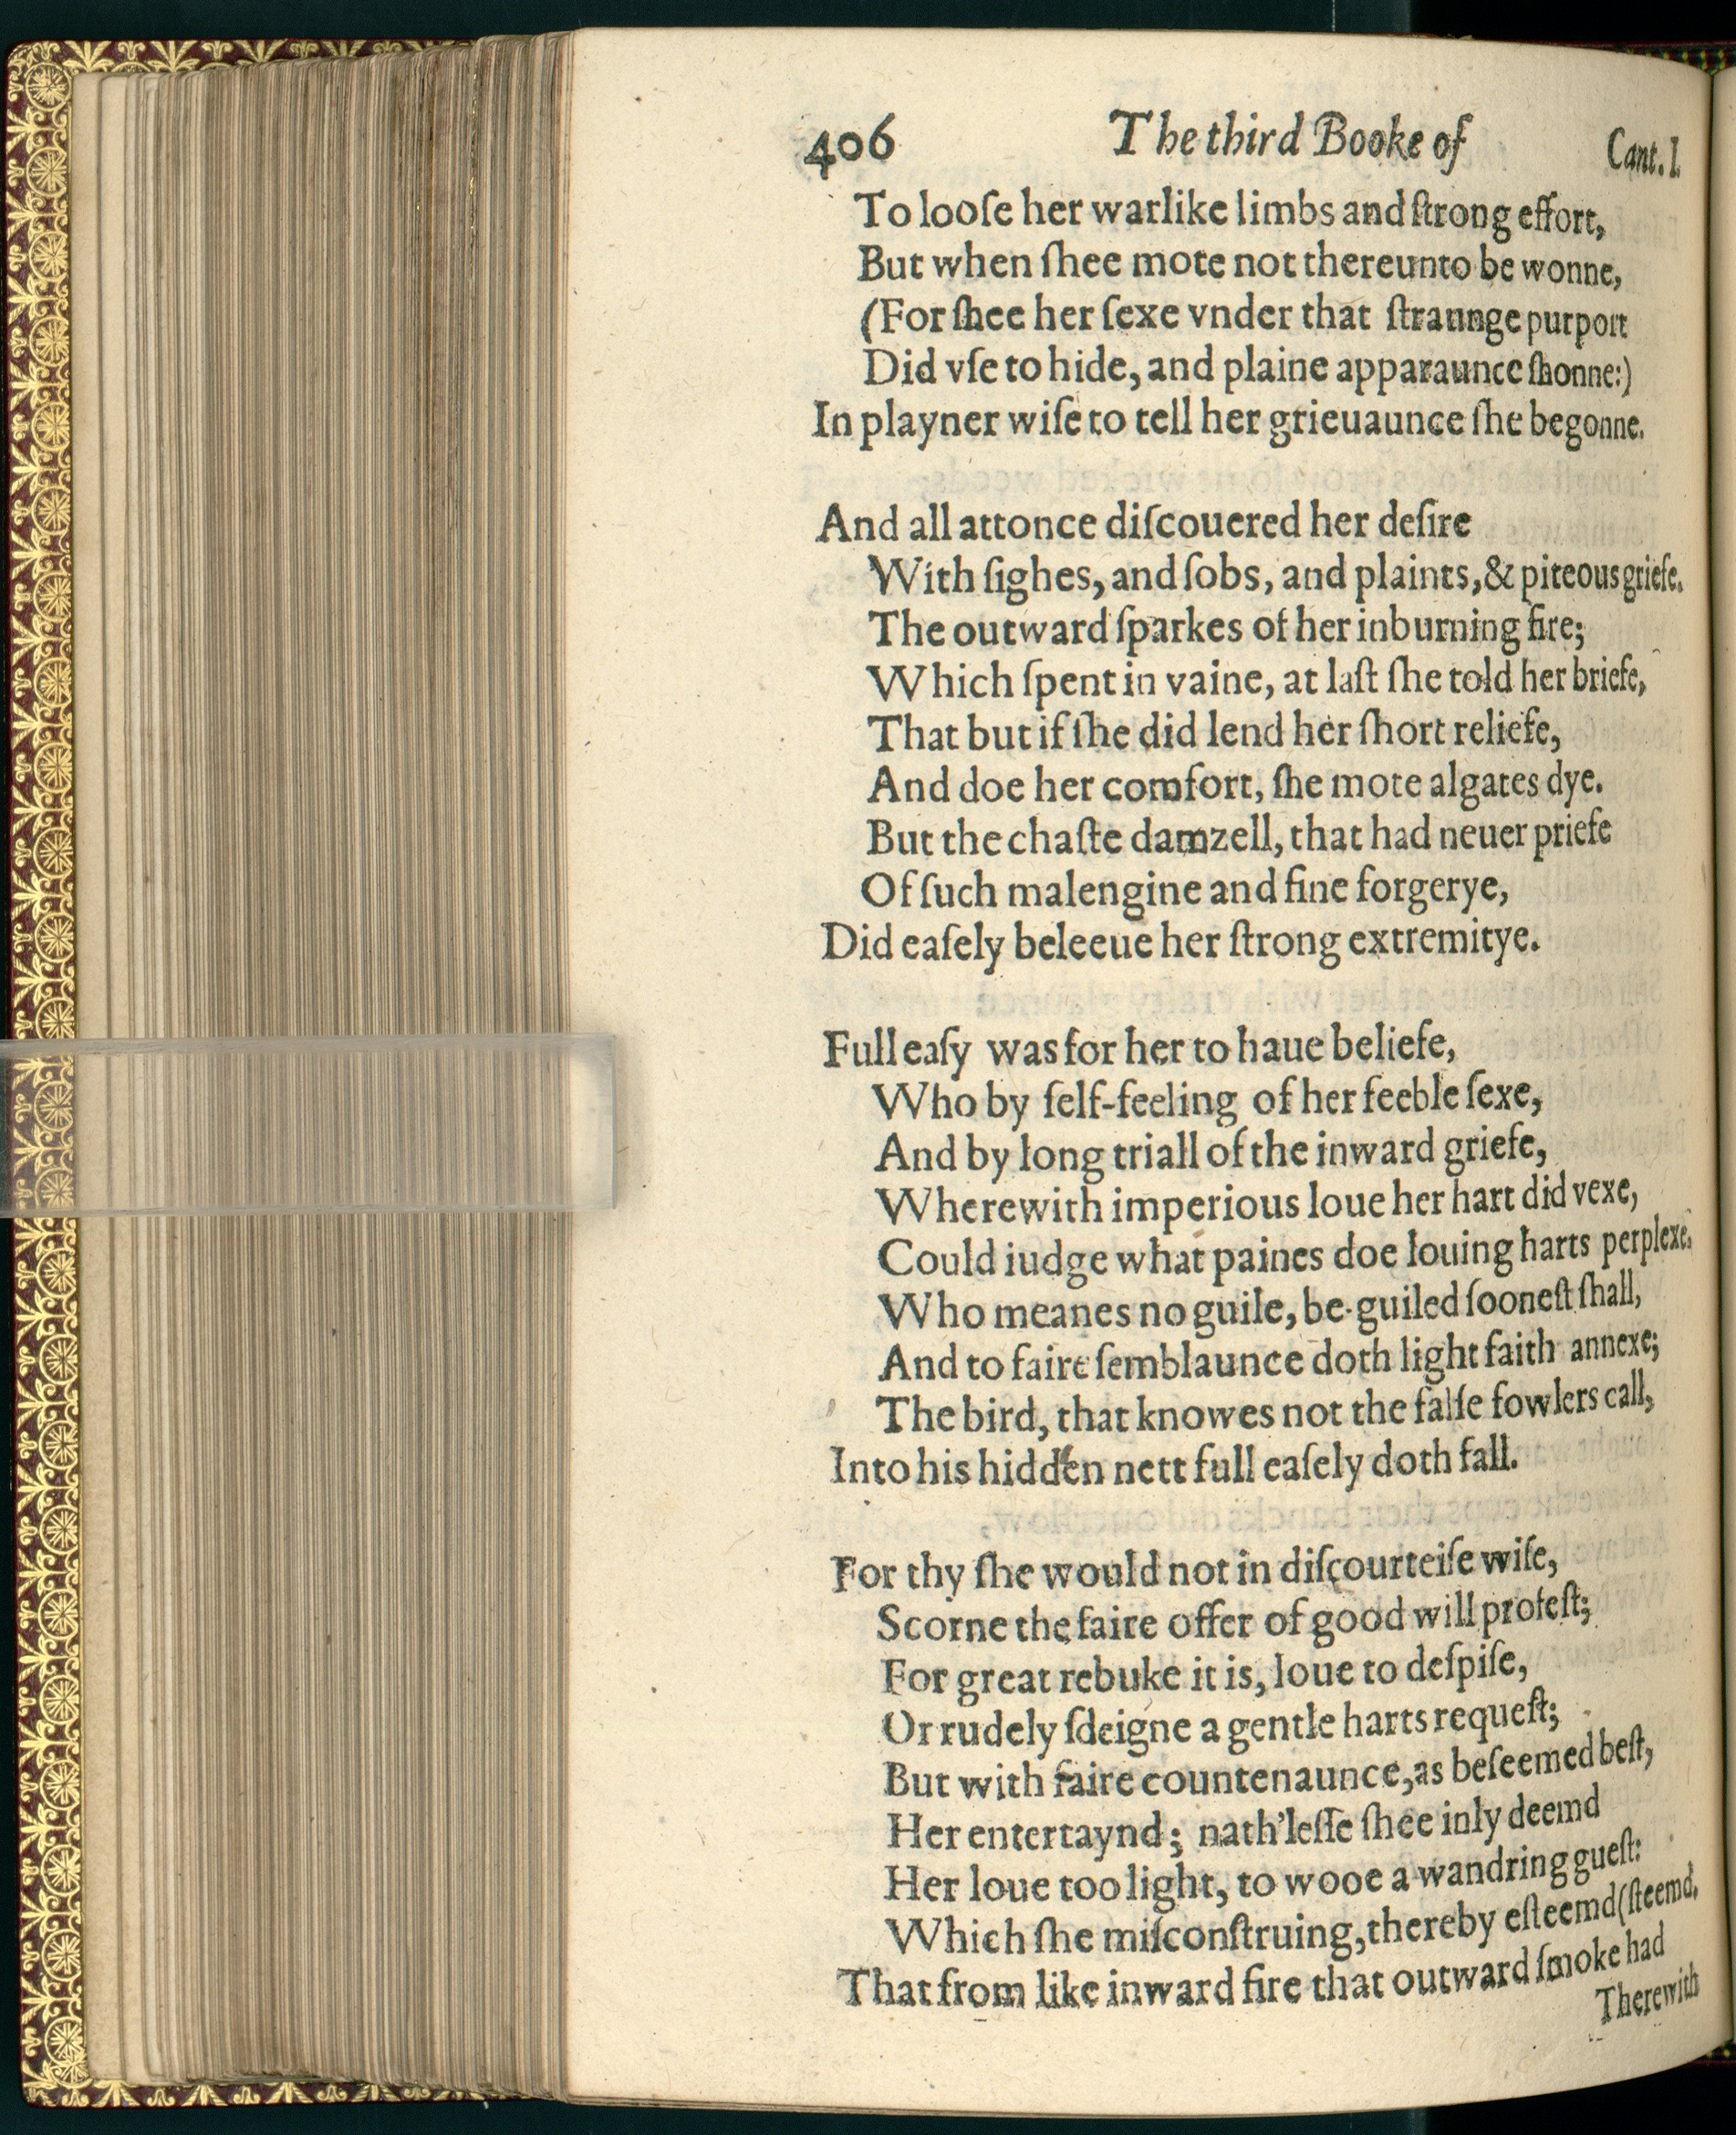 406 The third Booke of Cant. I.
To looſe her warlike limbs and ſtrong effort,
But when ſhee mote not thereunto be wonne,
(For ſhee her ſexe vnder that ſtraunge purport
Did vſe to hide, and plaine apparaunce ſhonne:)
In playner wiſe to tell her grieuaunce ſhe begonne.
And all attonce diſcouered her deſire
With ſighes, and ſobs, and plaints, & piteous griefe.
The outward ſparkes of her inburning fire;
Which ſpent in vaine, at laſt ſhe told her briefe,
That but if ſhe did lend her ſhort reliefe,
And doe her comfort, ſhe mote algates dye.
But the chaſte damzell, that had neuer priefe
Of ſuch malengine and fine forgerye,
Did eaſely beleeue her ſtrong extremitye.
Full eaſy was for her to haue beliefe,
Who by ſelf-feeling of her feeble ſexe,
And by long triall of the inward griefe,
Wherewith imperious loue her hart did vexe,
Could iudge what paines doe louing harts perplexe.
Who meanes no guile, be-guiled ſooneſt ſhall,
And to faire ſemblaunce doth light faith annexe;
The bird, that knowes not the falſe fowlers call,
Into his hidden nett full eaſely doth fall.
For thy ſhe would not in diſcourteiſe wiſe,
Scorne the faire offer of good will profeſt;
For great rebuke it is, loue to deſpiſe,
Or rudely ſdeigne a gentle harts requeſt;
But with faire countenaunce, as beſeemed beſt,
Her entertaynd; nath'leſſe ſhee inly deemd
Her loue too light, to wooe a wandring gueſt:
Which ſhe miſconſtruing, thereby eſteemd (ſteemd.
That from like inward fire that outward ſmoke had
Therewith